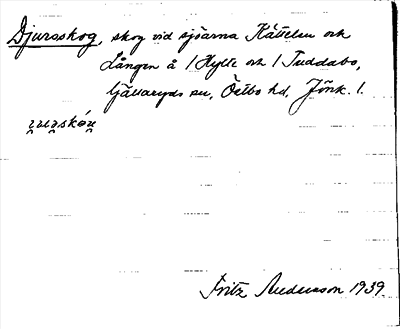 Djursskog, skog vid sjöarna Kättelen och
Lången å 1 Hylle och 1 Tuddabo,
Gällaryds sn, Östbo hd, Jönk. l.
Fritz Andersson 1939.